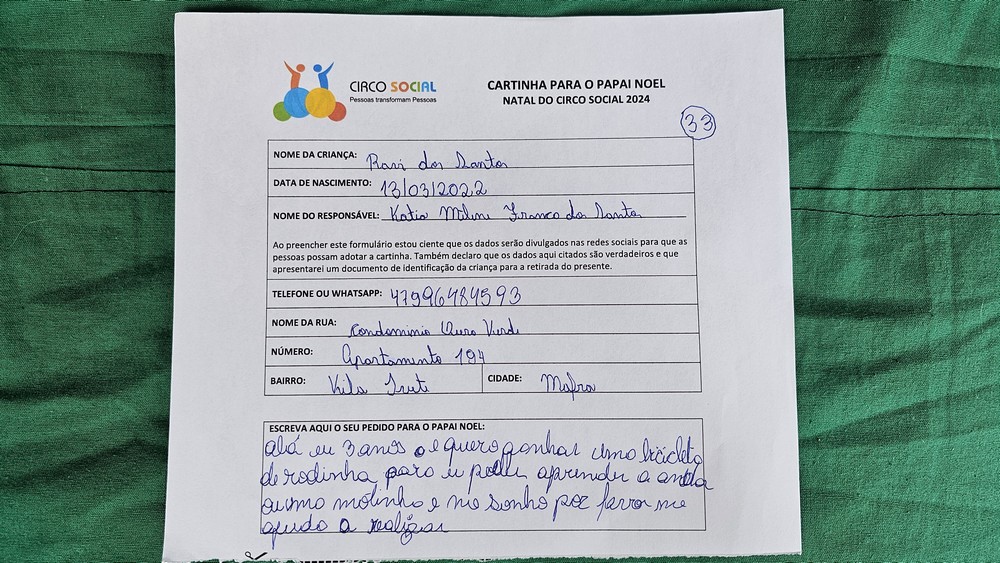 CIRCO SOCIAL
Pessoas transformam Pessoas
CARTINHA PARA O PAPAI NOEL
NATAL DO CIRCO SOCIAL 2024
33
NOME DA CRIANÇA: Ravi dos Santos
DATA DE NASCIMENTO: 13/03/2022
NOME DO RESPONSÁVEL: Katia Milene Franco dos Santos
Ao preencher este formulário estou ciente que os dados serão divulgados nas redes sociais para que as
pessoas possam adotar a cartinha. Também declaro que os dados aqui citados são verdadeiros e que
apresentarei um documento de identificação da criança para a retirada do presente.
TELEFONE OU WHATSAPP: 47996484593
NOME DA RUA: Condominio Ouro Verde
NÚMERO: Apartamento 194
BAIRRO: Vila Iveti CIDADE: Mafra
ESCREVA AQUI O SEU PEDIDO PARA O PAPAI NOEL:
olá eu 3 anos e quero ganhar uma bicicleta
de rodinha para eu poder aprender a anda
ou uma motinha e meo sonho por favor me
ajuda a realizar